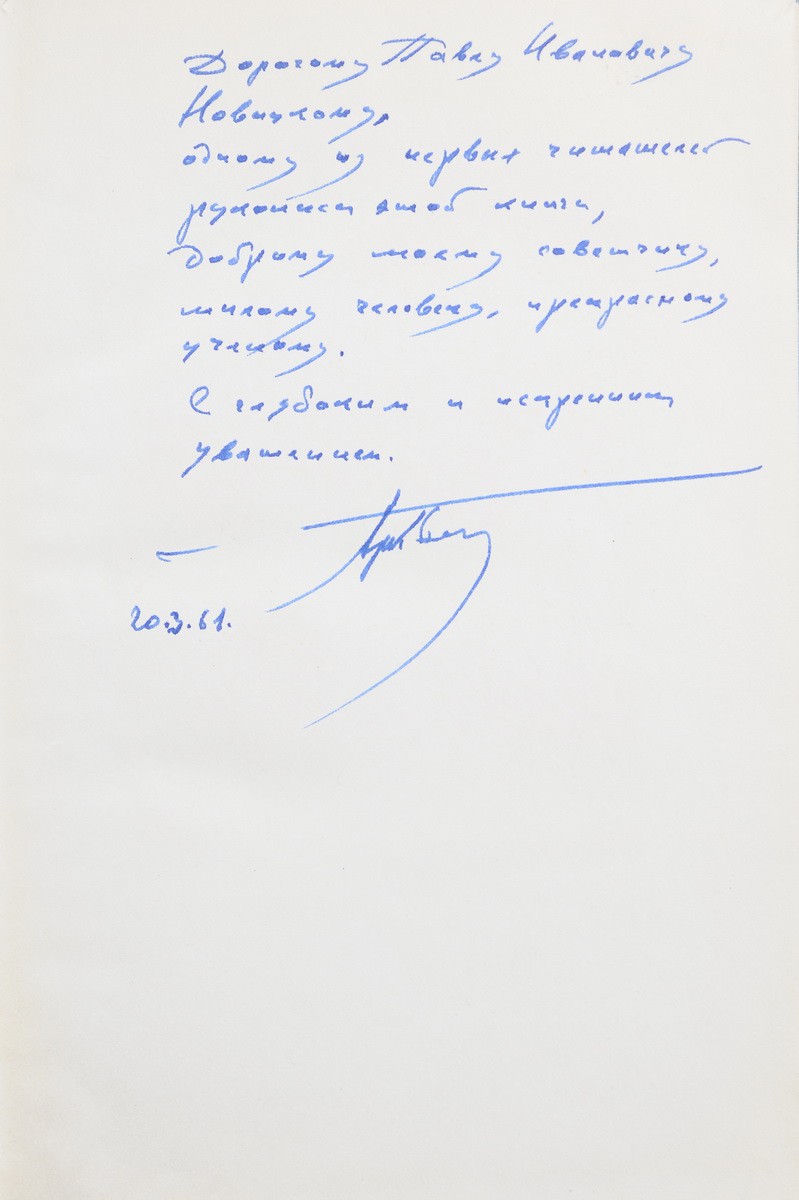 Дорогому Павлу Ивановичу
Новицкому,
одному из первых читателей
рукописи этой книги,
доброму моему советчику,
милому человеку, прекрасному
ученому.
С глубоким и искренним
уважением.
20.3.61.